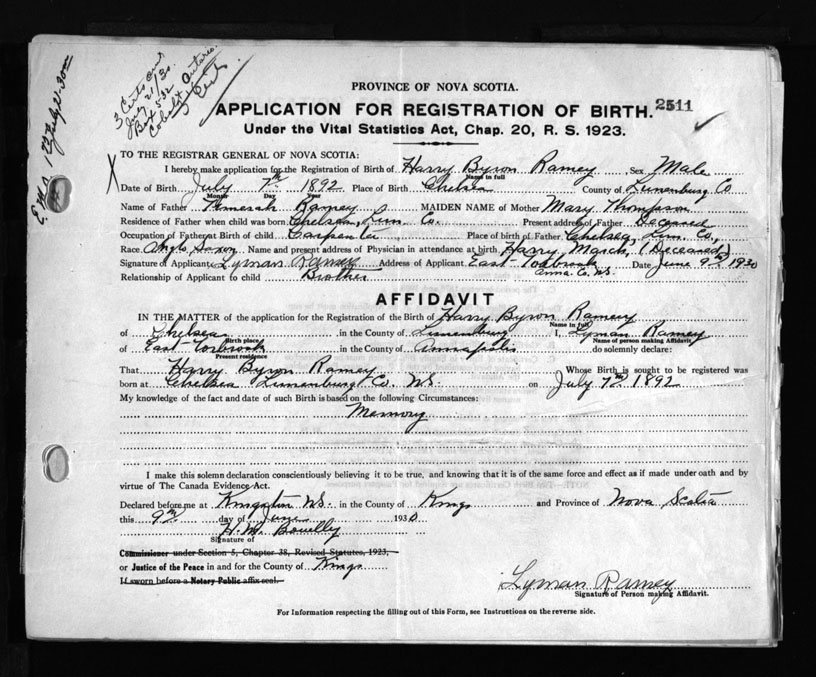 3 Certs out
July 21/30
Box 532
Cobalt Ontario
Cert.
PROVINCE OF NOVA SCOTIA.
APPLICATION FOR REGISTRATION OF BIRTH. 2511
Under the Vital Statistics Act, Chap. 20, R. S. 1923.
TO THE REGISTRAR GENERAL OF NOVA SCOTIA:
I hereby make application for the Registration of Birth of Harry Byron Ramey Sex Male
Name in full
Date of Birth July 7th 1892 Place of Birth Chelsea County of Lunenburg Co
Month Day Year
Name of Father Ramey MAIDEN NAME of Mother Mary Thompson
Residence of Father when child was born Chelsea, Lun. Co. Present address of Father Deceased
Occupation of Father at Birth of child Carpenter Place of birth of Father Chelsea, Lun. Co.,
Race Anglo Saxon Name and present address of Physician in attendance at birth Harry March, (Deceased)
Signature of Applicant Lyman Ramey Address of Applicant East Torbrook Date June 9th 1930
Anna. Co. N.S.
Relationship of Applicant to child Brother
AFFIDAVIT
IN THE MATTER of the application for the Registration of the Birth of Harry Byron Ramey
Name in full
of Chelsea in the County of Lunenburg I, Lyman Ramey
Birth place Name of person making Affidavit
of East Torbrook in the County of Annapolis do solemnly declare:
Present residence
That Harry Byron Ramey Whose Birth is sought to be registered was
born at Chelsea Lunenburg Co. N.S. on July 7th 1892
My knowledge of the fact and date of such Birth is based on the following Circumstances:
Memory
I make this solemn declaration conscientiously believing it to be true, and knowing that it is of the same force and effect as if made under oath and by
virtue of The Canada Evidence Act.
Declared before me at Kingston N.S. in the County of Kings and Province of Nova Scotia
this 9th day of June 1930
H. M.
Signature of
Commissioner under Section 5, Chapter 38, Revised Statutes, 1923,
or Justice of the Peace in and for the County of Kings
If sworn before a Notary Public affix seal.
Lyman Ramey
Signature of Person making Affidavit.
For Information respecting the filling out of this Form, see Instructions on the reverse side.